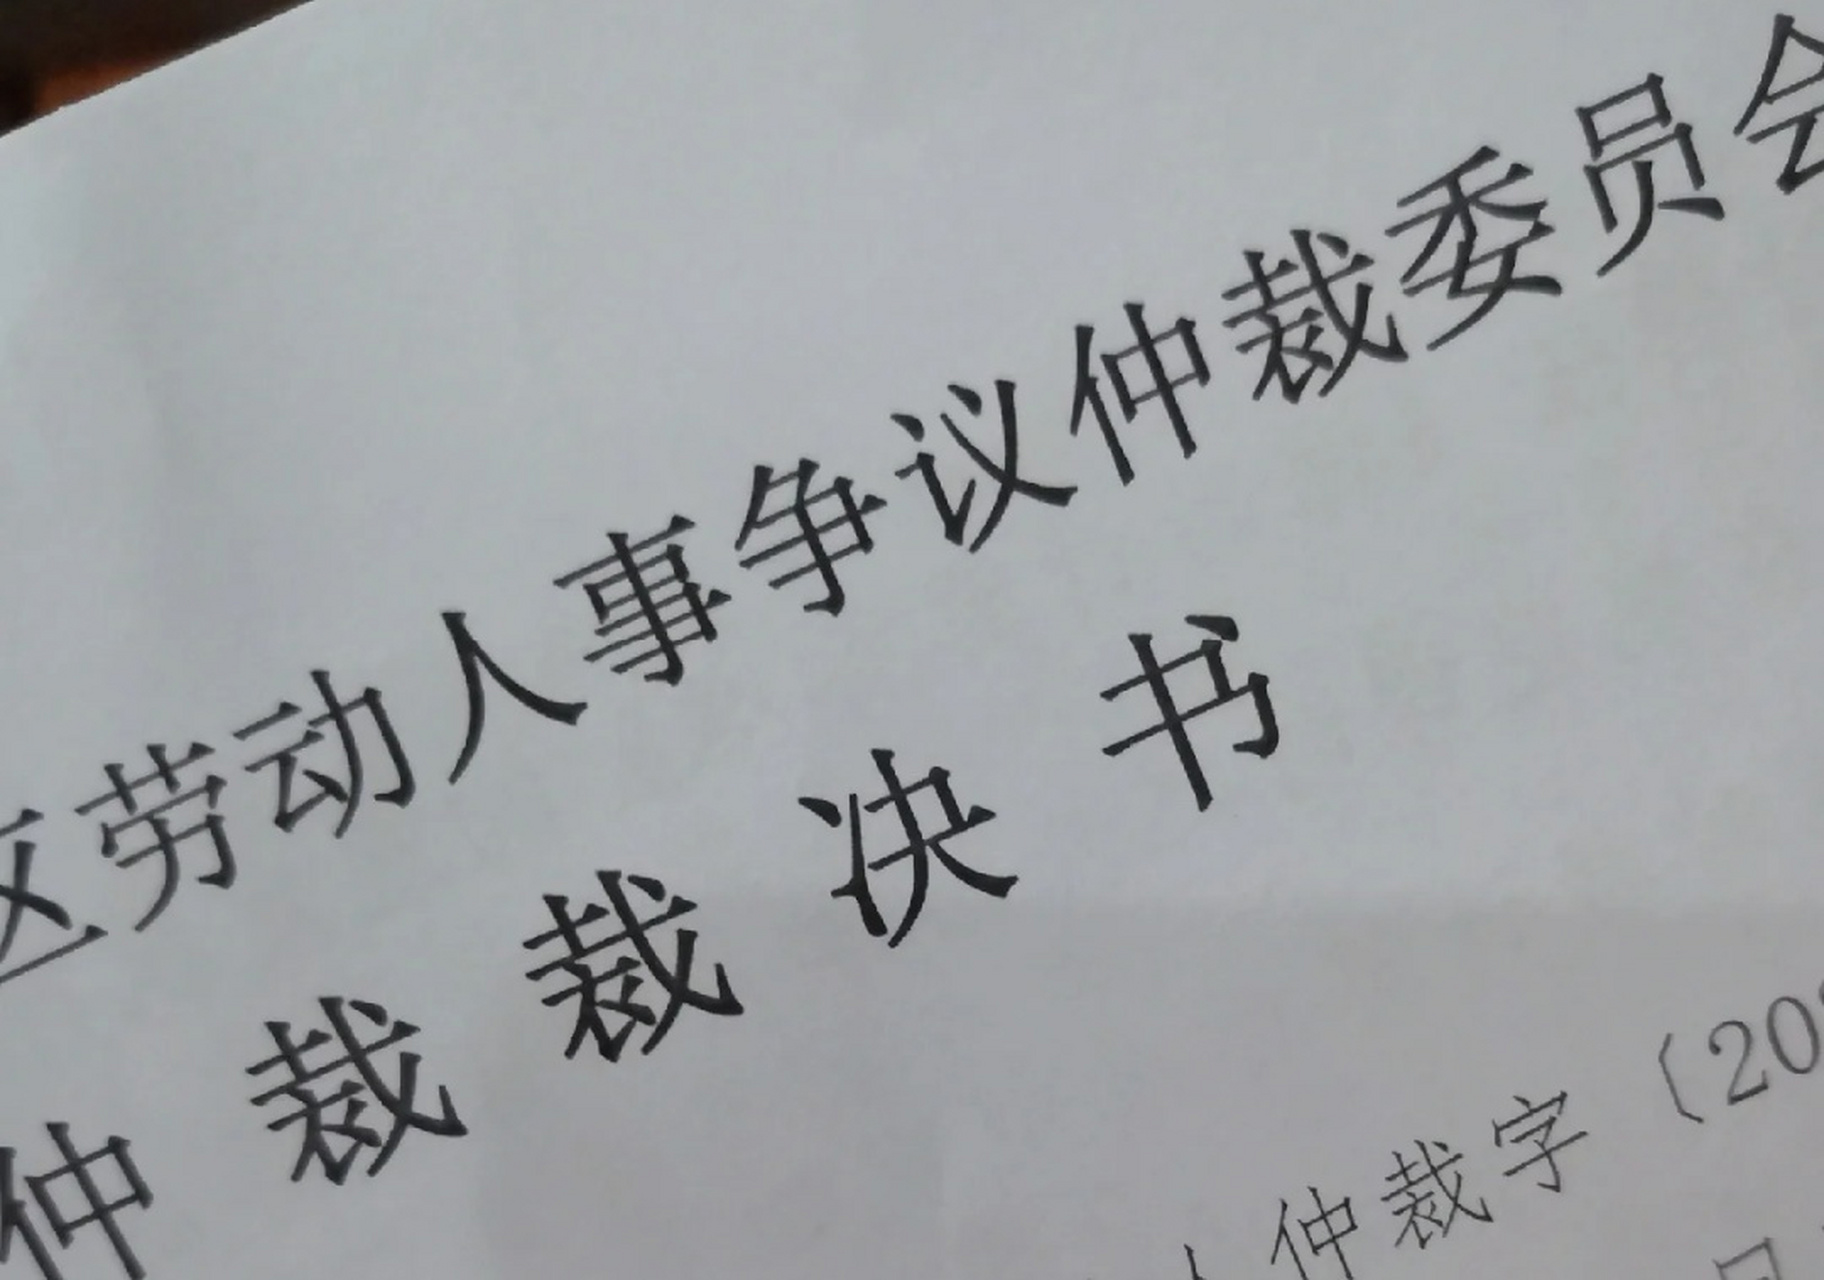 区劳动人事争议仲裁委员会
仲裁裁决书
人仲裁字〔20